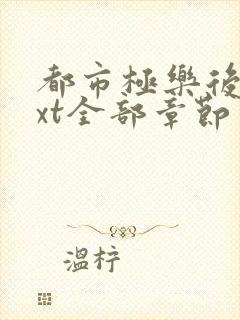 都市極樂後
xt全部章節
溫柠